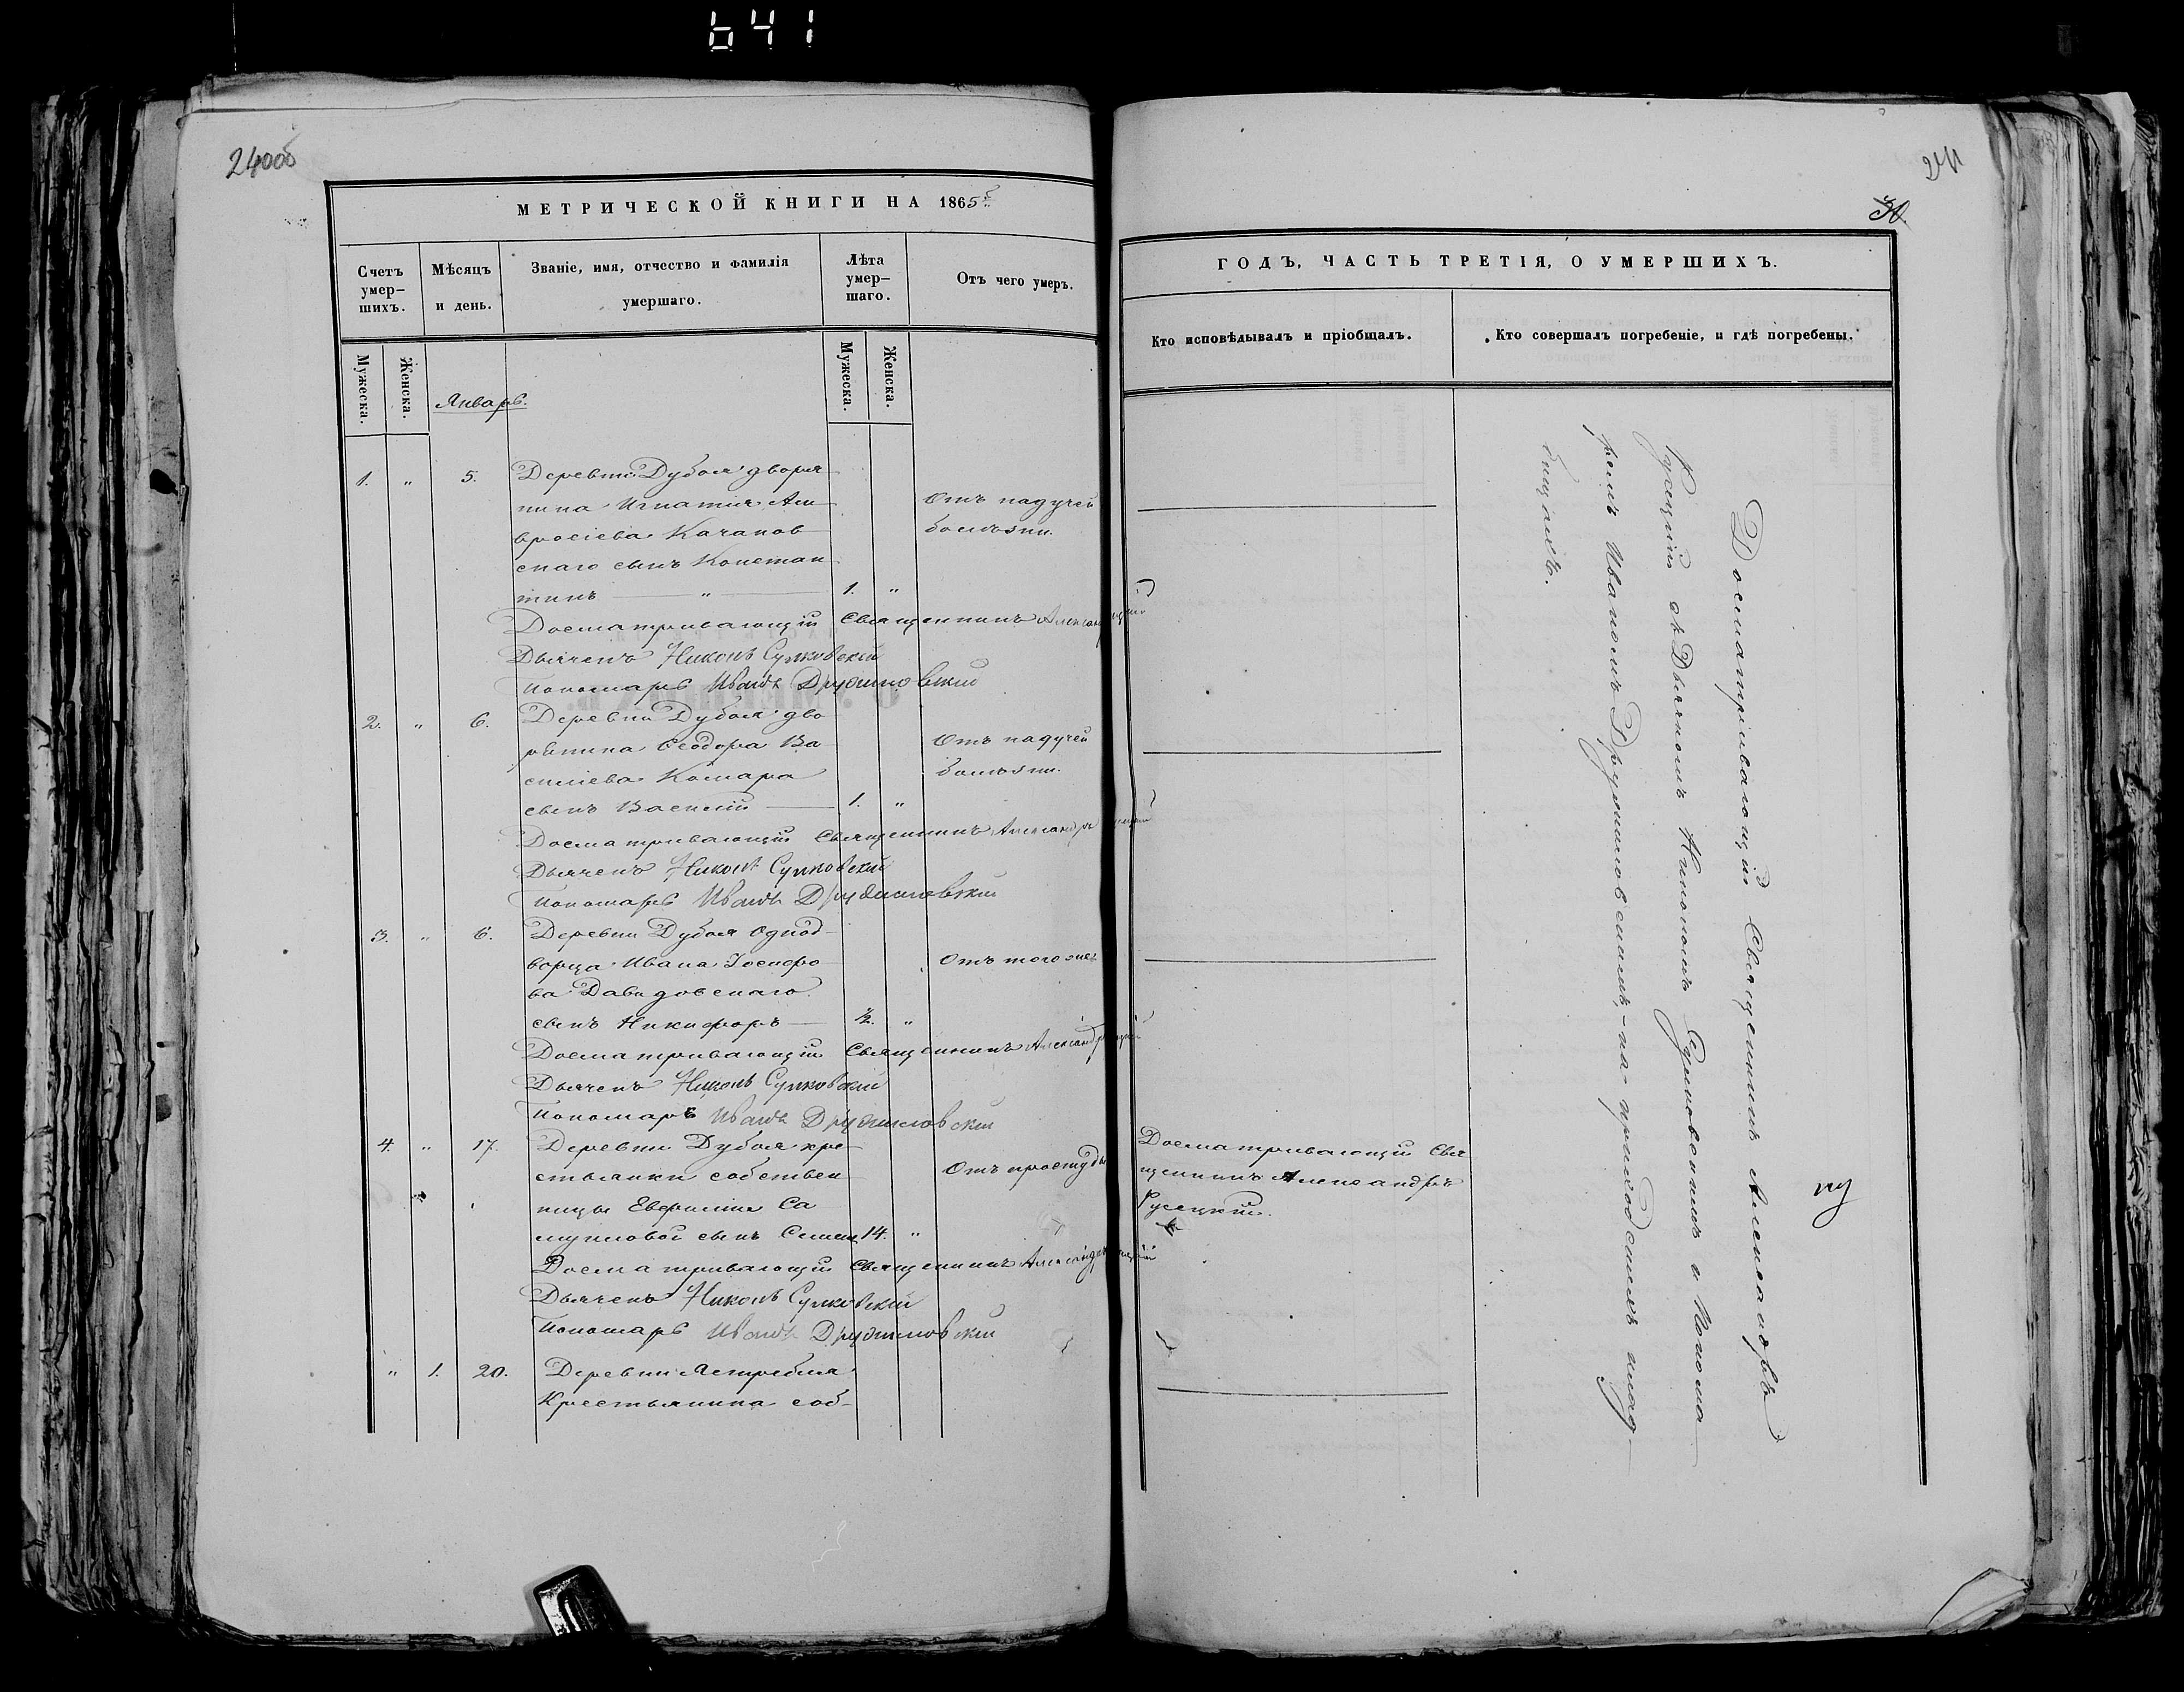 641
240об
МЕТРИЧЕСКОЙ КНИГИ НА 1865
Счетъ умер-шихъ.
Мѣсяцъ и день.
Званіе, имя, отчество и фамилія умершаго.
Лѣта умер-шаго.
Отъ чего умеръ.
Мужеска.
Женска.
Мужеска.
Женска.
Январь.
1. " 5. Деревни Дубоя дворя
нина Игнатія Ам
вросіева Качанов
скаго сынъ Констан
тинъ " 1. "
Отъ падучей
болѣзни.
Досматривающій Священникъ Александръ
Дьячекъ Никонъ Сулковскій
Пономарь Иванъ Друзиловскій
2. " 6. Деревни Дубоя дво
рянина Ѳеодора Ва
силіева Комара
сынъ Василій 1. "
Отъ падучей
болѣзни.
Досматривающій Священникъ Александръ
Дьячекъ Никонъ Сулковскій
Пономарь Иванъ Друзиловскій
3. " 6. Деревни Дубоя однод
ворца Ивана Іосифо
ва Давидовскаго
сынъ Никифоръ ½. "
Отъ того же
Досматривающій Священникъ Александръ
Дьячекъ Никонъ Сулковскій
Пономарь Иванъ Друзиловскій
4. " 17. Деревни Дубоя кре
стьянки собствен
ницы Евфиміи Са
муиловой сынъ Семенъ 14. "
Отъ простуды
Досматривающій Священникъ Александръ
Дьячекъ Никонъ Сулковскій
Пономарь Иванъ Друзиловскій
" 1. 20. Деревни Ястребля
Крестьянина соб-
241
30
ГОДЪ, ЧАСТЬ ТРЕТІЯ, О УМЕРШИХЪ.
Кто исповѣдывалъ и пріобщалъ.
Кто совершалъ погребеніе, и гдѣ погребены.
Досматривающій Свя
щенникъ Александръ
Русецкій.
Досматривающій Священникъ Александръ
Русецкій съ Дьячкомъ Никономъ Сулковскимъ и Понома
ремъ Иваномъ Друзиловскимъ-на-приходскихъ клад
бищахъ.